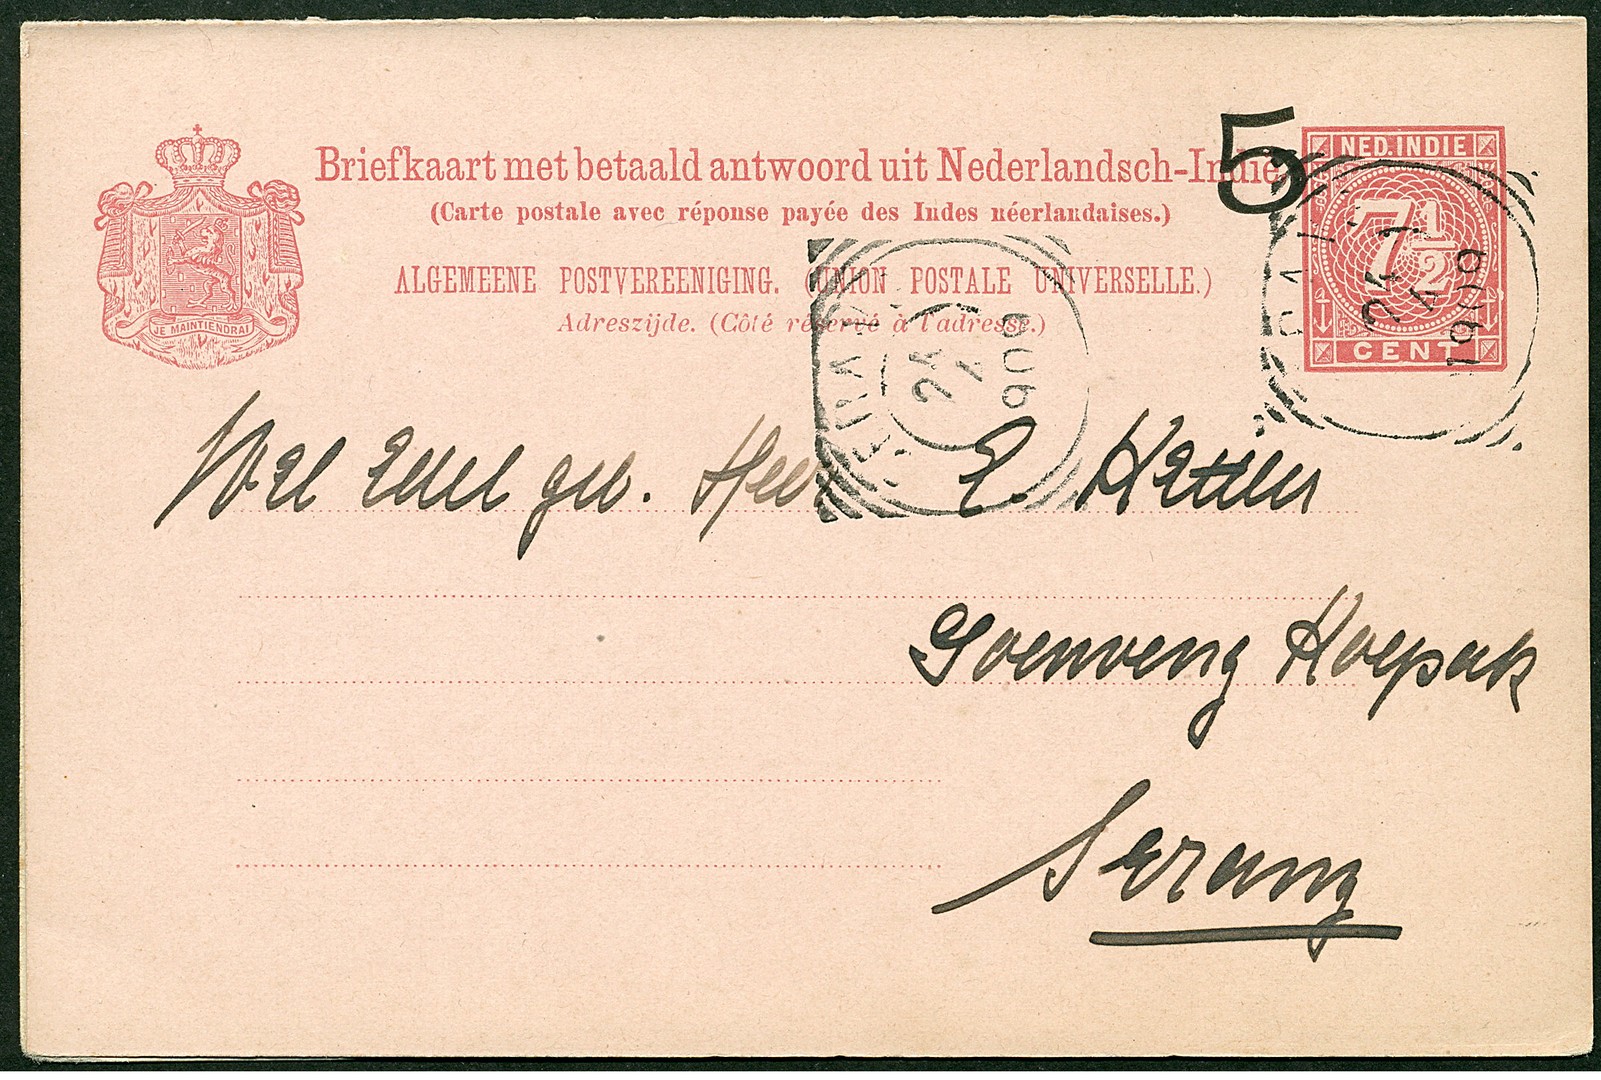 5
NED. INDIE
7½
CENT
JE MAINTIENDRAI
Briefkaart met betaald antwoord uit Nederlandsch-Indië
(Carte postale avec réponse payée des Indes néerlandaises.)
ALGEMEENE POSTVEREENIGING. (UNION POSTALE UNIVERSELLE.)
Adreszijde. (Côté réservé à l'adresse.)
24
1909
24
909
Wel Edel geb. Heer E. Hettler
Goenoeng Koepak
Serang